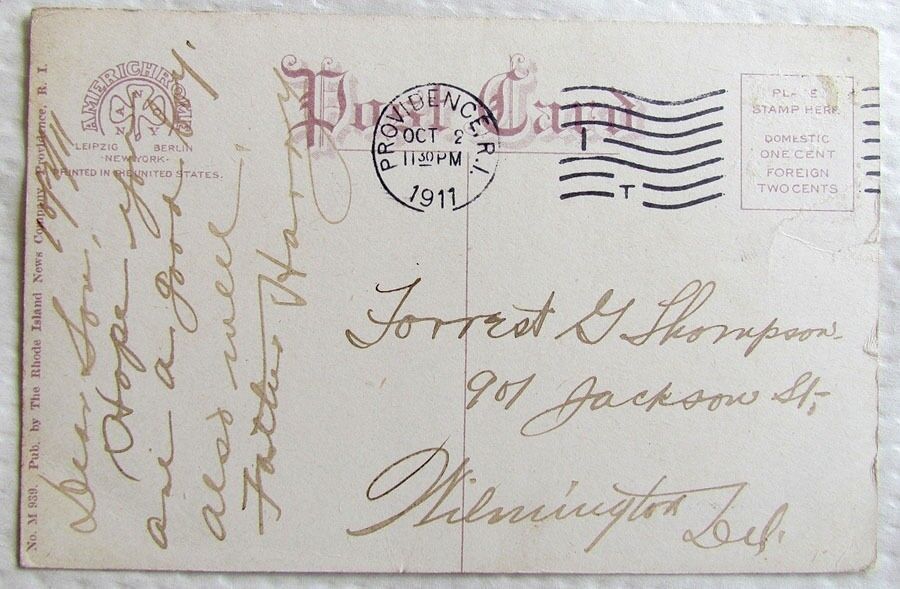 Post Card
AMERICHROME
ANCO
N.Y.
LEIPZIG BERLIN
-NEW-YORK-
PRINTED IN THE UNITED STATES.
PROVIDENCE, R.I.
OCT 2
11 30 PM
1911
I
T
PLACE
STAMP HERE
DOMESTIC
ONE CENT
FOREIGN
TWO CENTS
No. M 939. Pub. by The Rhode Island News Company, Providence, R. I.
Dear Son,
Hope you
are a good boy.
also well
Father Harry
Forrest G Thompson
901 Jackson St,
Wilmington
Del.